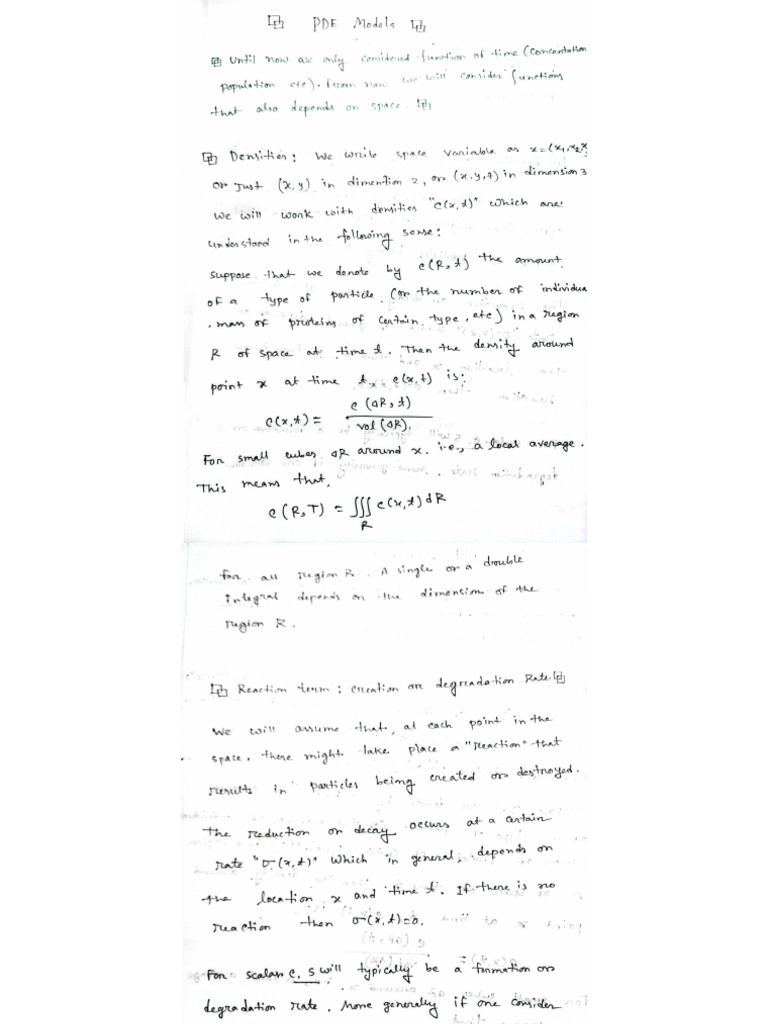 PDE Models
Until now we only considered function of time (concentration
population etc). From now we will consider functions
that also depends on space.
Densities: We write space variable as x=(x₁,x₂,x
or Just (x,y) in dimention 2, or (x,y,z) in dimension 3
We will work with densities "c(x,t)" which are
understand in the following sense:
suppose that we denote by c(R,t) the amount
of a type of particle (or the number of individua
, mass of proteins of certain type, etc) in a region
R of space at time t. Then the density around
point x at time t, c(x,t) is:
c(x,t) = c(ΔR,t) / vol(ΔR),
For small cubes ΔR around x. i.e., a local average.
This means that,
c(R,T) = ∭_R c(x,t) dR
For all region R. A single or a double
integral depends on the dimension of the
region R.
Reaction term: creation or degradation Rate
We will assume that, at each point in the
space, there might take place a "reaction" that
results in particles being created or destroyed.
The reduction or decay occurs at a certain
rate "σ(x,t)" which in general, depends on
the location x and time t. If there is no
reaction then σ(x,t)=0.
For scalar c, s will typically be a formation or
degradation rate. More generally if one consider